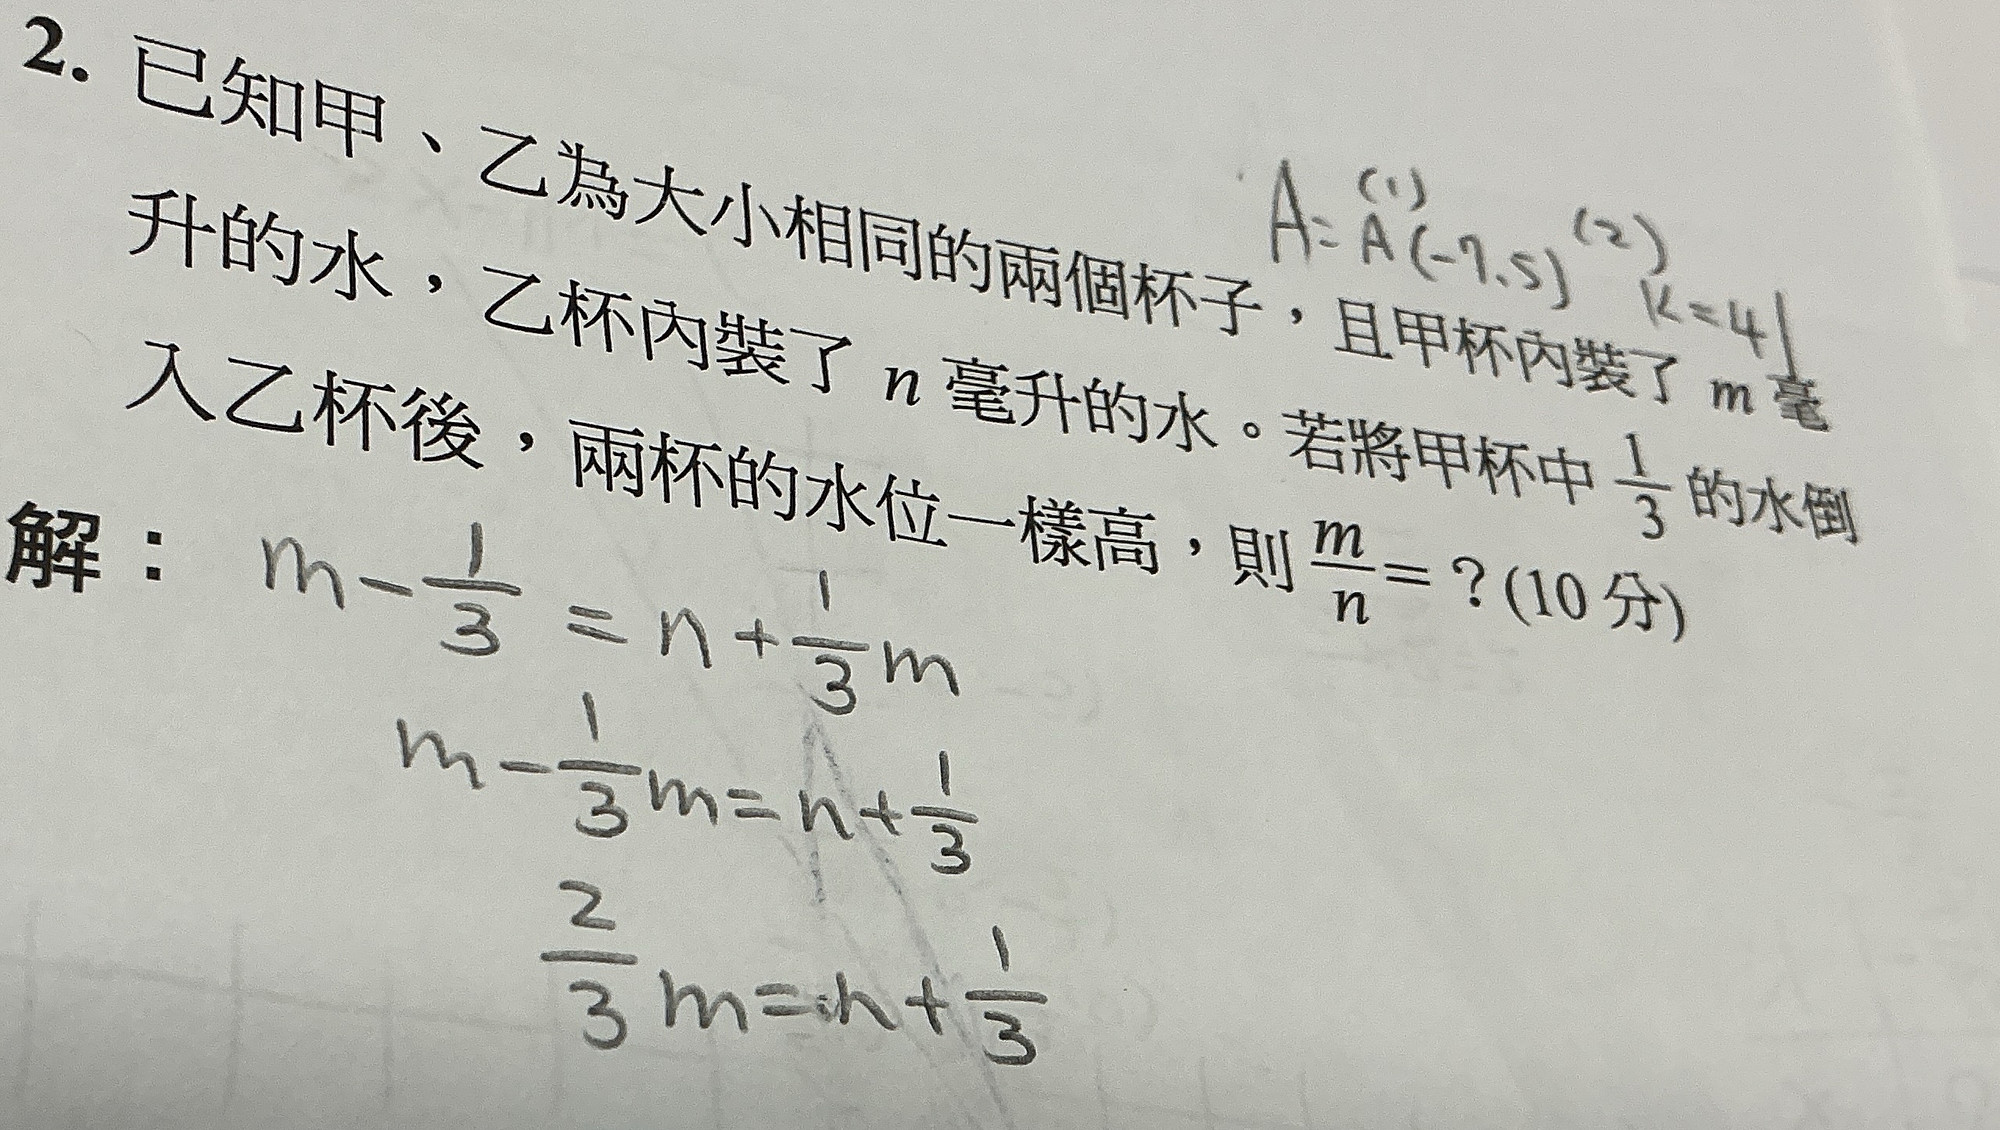 2. 已知甲、乙為大小相同的兩個杯子，且甲杯內裝了 m 毫
升的水，乙杯內裝了 n 毫升的水。若將甲杯中 1/3 的水倒
入乙杯後，兩杯的水位一樣高，則 m/n = ？(10 分)
A= (1) A(-7.5) (2) k=4
解：m - 1/3 = n + 1/3 m
m - 1/3 m = n + 1/3
2/3 m = n + 1/3